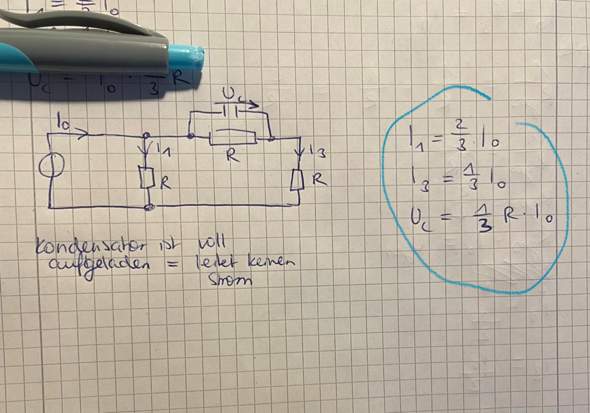 I₁ = 2/3 I₀
U_c = I₀ · 1/3 R
U_c
I₀
I₁
R
I₃
R
R
Kondensator ist voll
aufgeladen = leitet keinen
Strom
I₁ = 2/3 I₀
I₃ = 1/3 I₀
U_c = 1/3 R · I₀